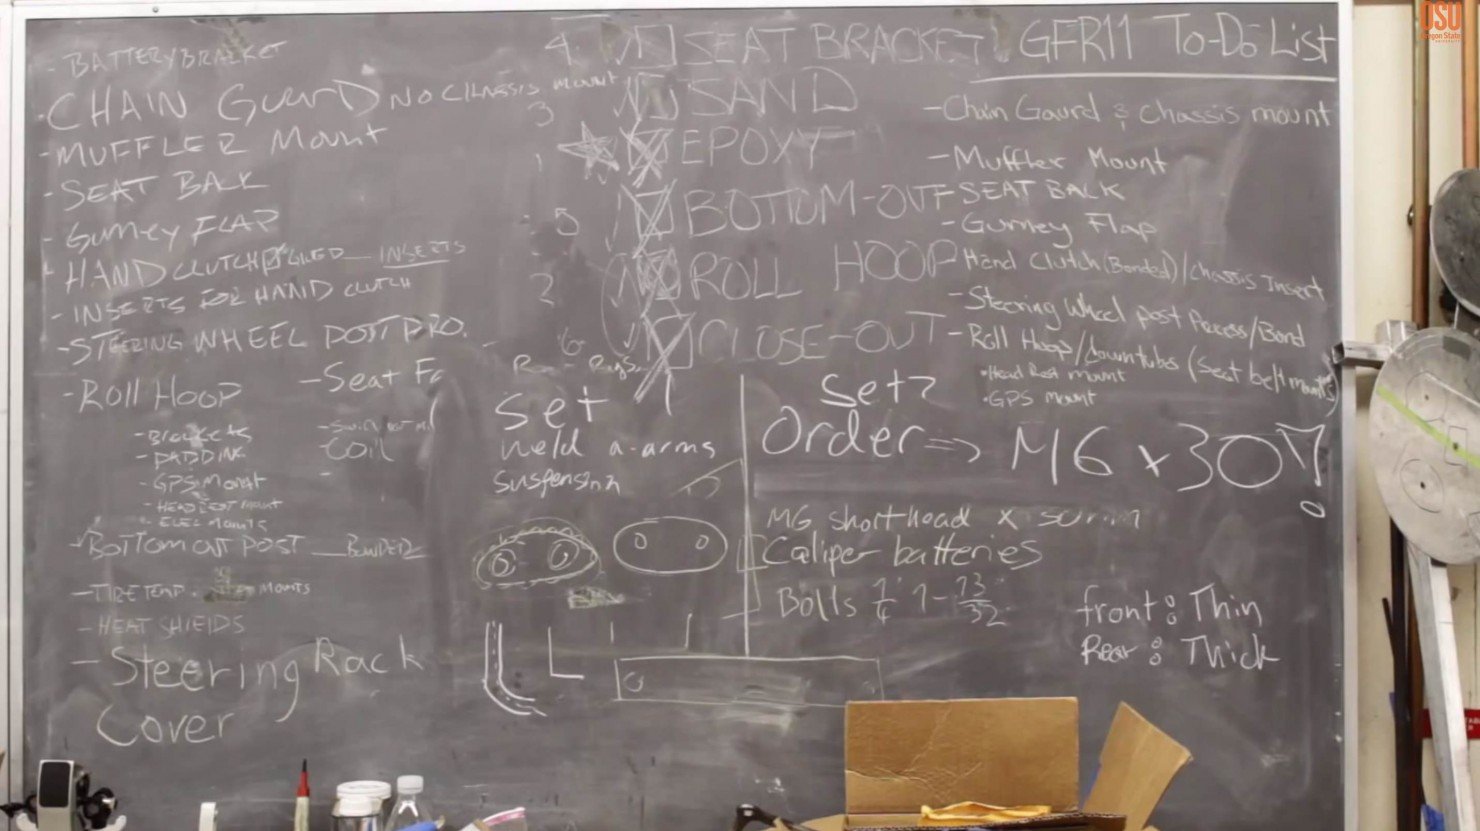 - BATTERY BRACKET
- CHAIN GuarD NO CHASSIS mount
- MUFFLER Mount
- SEAT BACK
- Gurney FLAP
- HAND CLUTCH INSERTS
- INSERTS FOR HAND CLUTCH
- STEERING WHEEL POST PRO.
- ROLL HOOP
- Brackets
- PADDING
- GPS Mount
- HEAD REST MOUNT
- ELEC Mounts
- BOTTOM OUT POST BONDED
- TIRE TEMP MOUNTS
- HEAT SHIELDS
- Steering Rack
Cover
- Seat
- COIL
4. SEAT BRACKET
3 SAND
1 EPOXY
5 BOTTOM-OUT
2 ROLL HOOP
6 CLOSE-OUT
Set 1
Weld a-arms
suspension
Set 2
Order => M6 x 30
M6 short head x
Caliper batteries
Bolts
GFR11 To-Do List
- Chain Gaurd & Chassis mount
- Muffler Mount
- SEAT BACK
- Gurney Flap
- Hand Clutch (Bonded) / Chassis Insert
- Steering Wheel Post Access/Bond
- Roll Hoops/downtubes (Seat belt mounts)
• Head Rest mount
• GPS mount
front: Thin
Rear: Thick
OSU
Oregon State